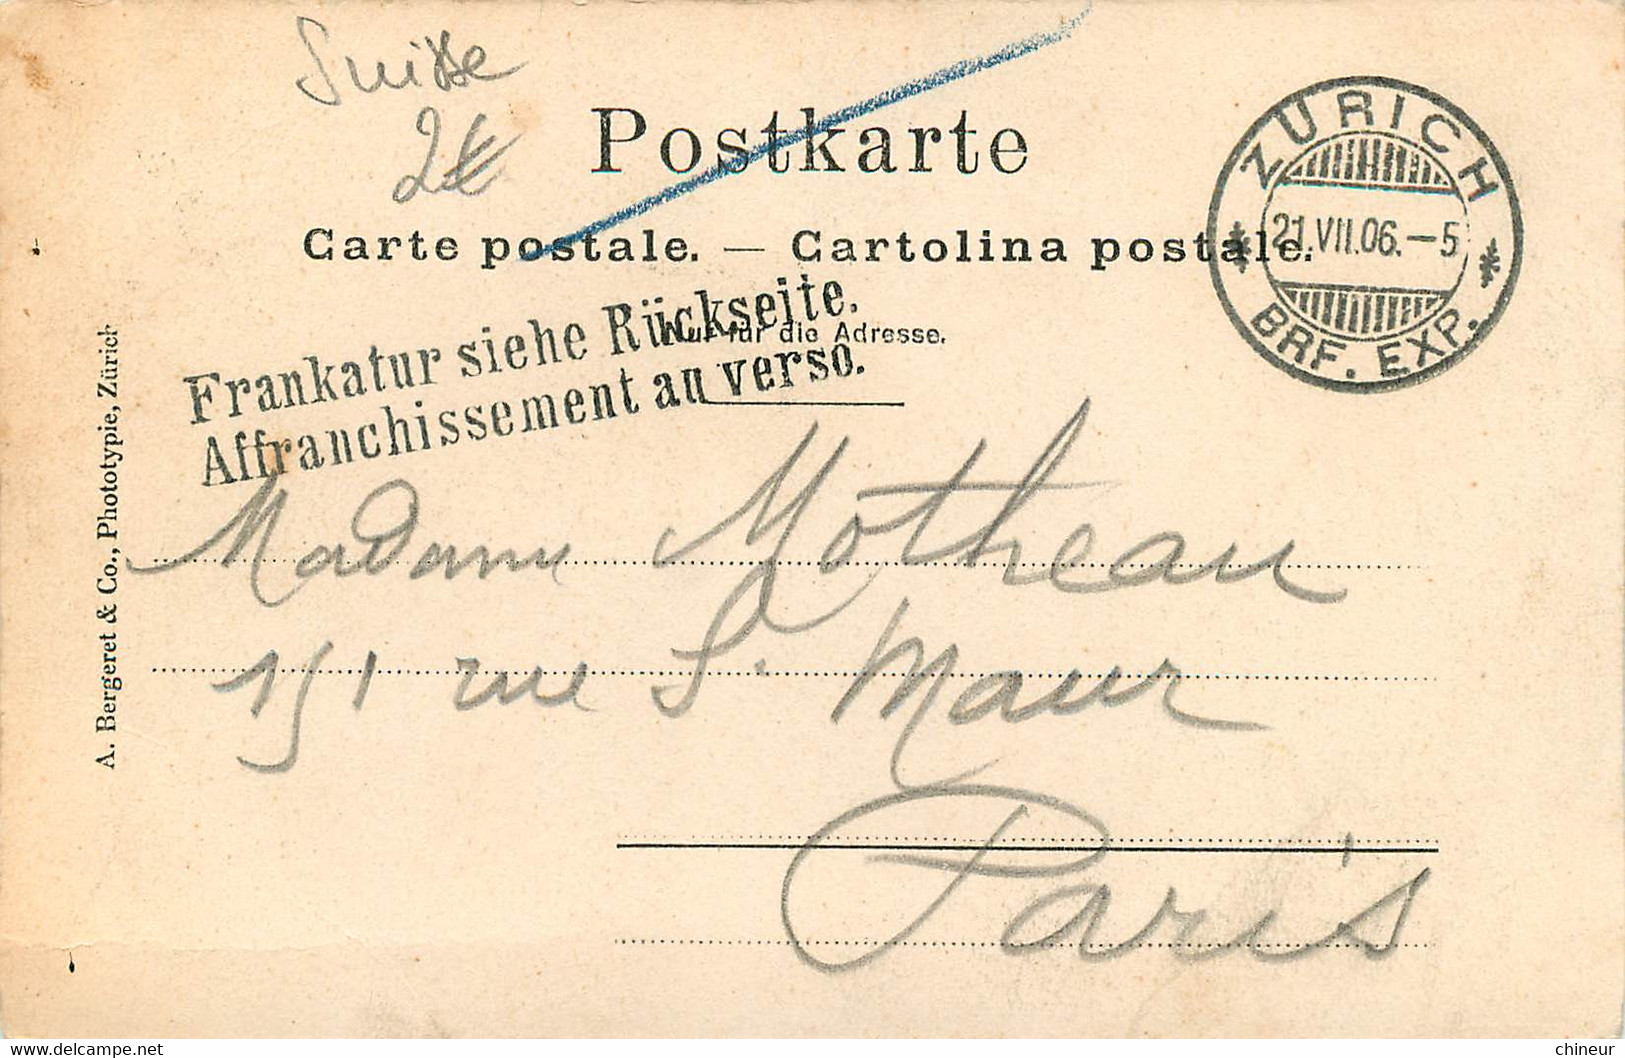 Suisse
2€
Postkarte
Carte postale. — Cartolina postale.
Nur für die Adresse.
Frankatur siehe Rückseite.
Affranchissement au verso.
ZÜRICH
21.VII.06.–5
BRF. EXP.
A. Bergeret & Co., Phototypie, Zürich
Madame Motheau
151 rue St Maur
Paris
delcampe.net
chineur